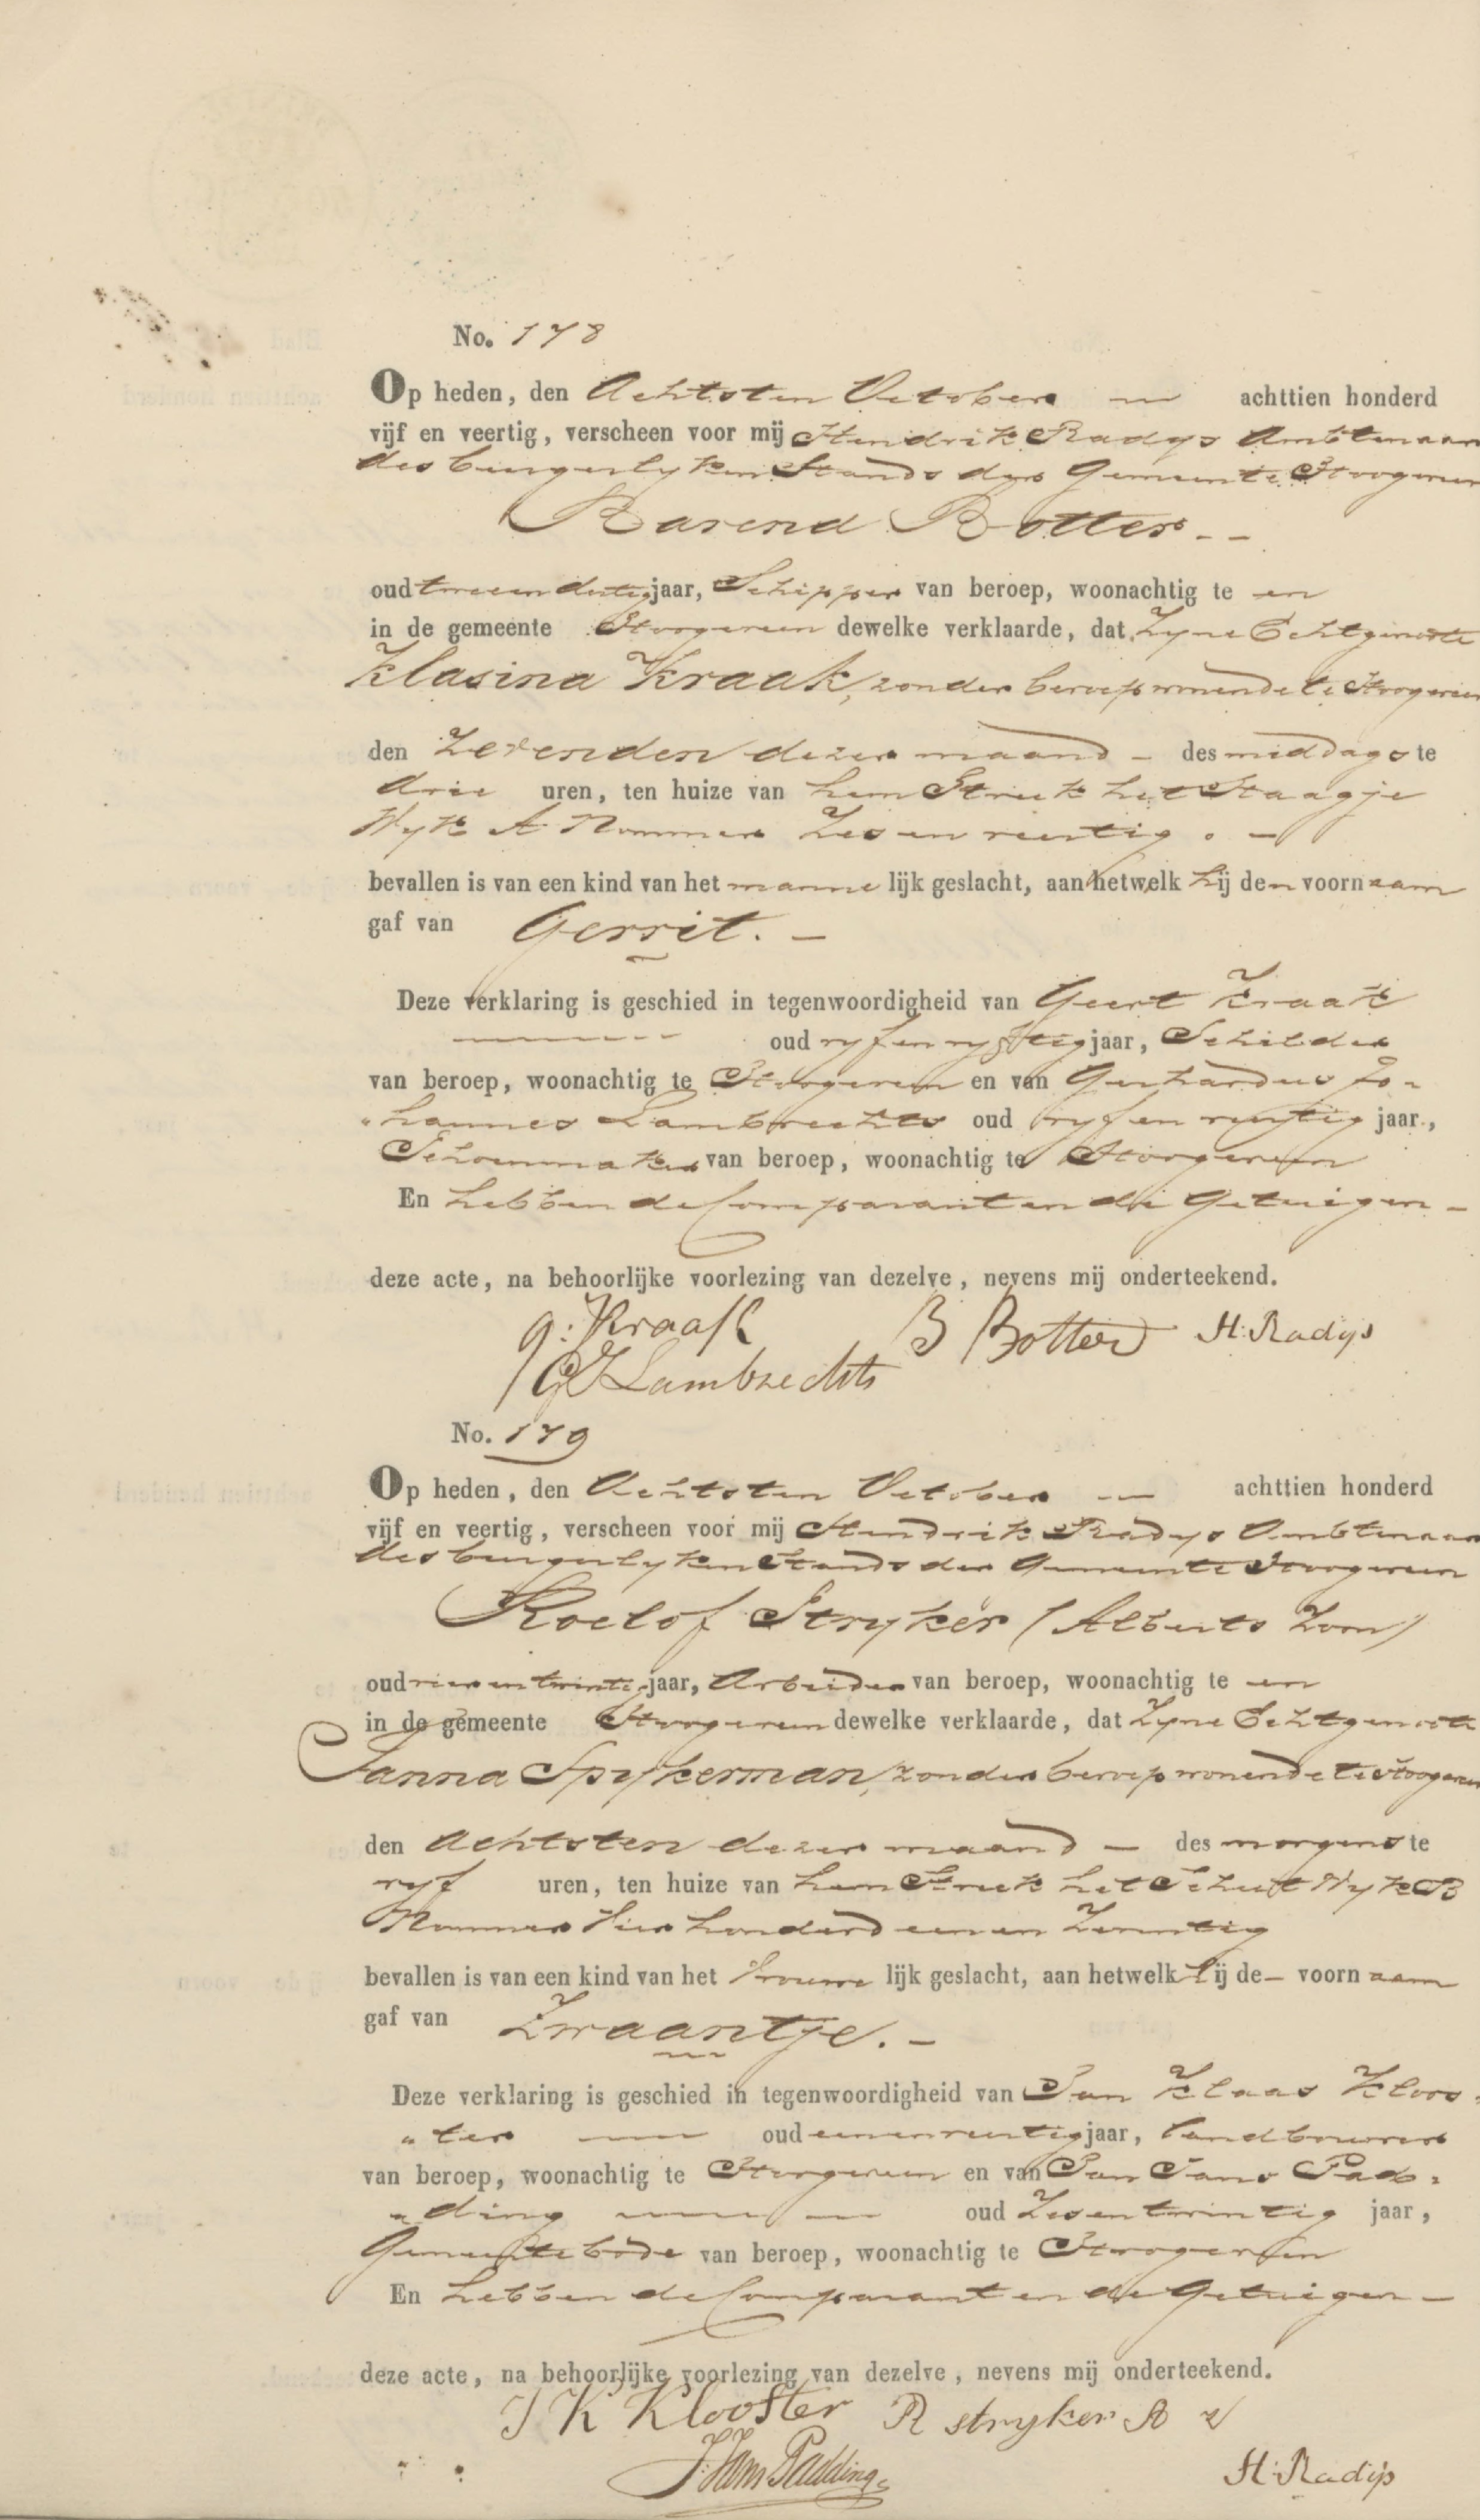 No. 178
Op heden, den Achtsten October achttien honderd
vijf en veertig, verscheen voor mij Hendrik Radijs Ambtenaar
des burgerlyken Stands der Gemeente Hoogeveen
Barend Botter. -
oud tweeendertig jaar, Schipper van beroep, woonachtig te en
in de gemeente Hoogeveen dewelke verklaarde, dat Zyne Echtgenoote
Klasina Kraak, zonder beroep wonende te Hoogeveen
den Zevenden dezer maand - des middags te
drie uren, ten huize van hem Streek het Haagje
Wyk A Nommer Zes en veertig. -
bevallen is van een kind van het manne lijk geslacht, aan hetwelk hij den voornaam
gaf van Gerrit. -
Deze verklaring is geschied in tegenwoordigheid van Geert Kraak
oud vyfenvyftig jaar, Schilder
van beroep, woonachtig te Hoogeveen en van Gerhardus Jo-
"hannes Lambrechts oud vyf en veertig jaar,
Schoenmaker van beroep, woonachtig te Hoogeveen
En hebben de Comparant en de Getuigen -
deze acte, na behoorlijke voorlezing van dezelve, nevens mij onderteekend.
G: Kraak B Botter H: Radijs
GJ Lambrechts
No. 179
Op heden, den Achtsten October achttien honderd
vijf en veertig, verscheen voor mij Hendrik Radijs Ambtenaar
des burgerlyken Stands der Gemeente Hoogeveen
Roelof Stryker (Alberts Zoon)
oud vierentwintig jaar, Arbeider van beroep, woonachtig te en
in de gemeente Hoogeveen dewelke verklaarde, dat Zyne Echtgenoote
Janna Spykerman, zonder beroep wonende te Hoogeveen
den Achtsten dezer maand - des morgens te
vyf uren, ten huize van hem Streek het Schut Wyk B
Nommer Vier honderd een en Zeventig
bevallen is van een kind van het Vrouwe lijk geslacht, aan hetwelk hij de- voornaam
gaf van Zwaantje. -
Deze verklaring is geschied in tegenwoordigheid van Jan Klaas Kloos-
"ter oud eenenveertig jaar, Landbouwer
van beroep, woonachtig te Hoogeveen en van Jan Jans Pad-
"ding oud Zesentwintig jaar,
Gemeentebode van beroep, woonachtig te Hoogeveen
En hebben de Comparant en de Getuigen -
deze acte, na behoorlijke voorlezing van dezelve, nevens mij onderteekend.
J K Klooster R stryker A z
J: Jans Padding H: Radijs